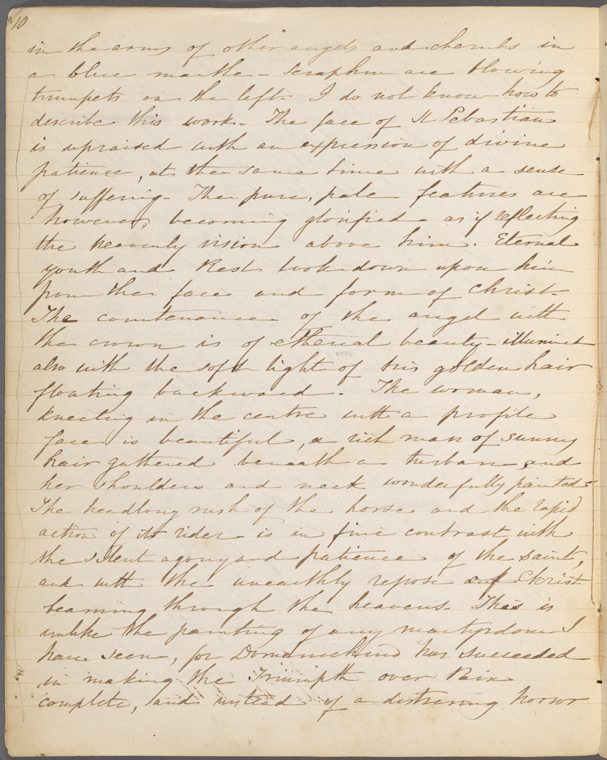 10
in the arms of other angels and cherubs in
a blue mantle - Seraphim are blowing
trumpets on the left. I do not know how to
describe this work. The face of St Sebastian
is upraised with an expression of divine
patience, at the same time with a sense
of suffering. The pure, pale features are
however, becoming glorified as if reflecting
the heavenly vision above him. Eternal
youth and Rest look down upon him
from the face and form of Christ.
The countenance of the angel with
the crown is of etherial beauty - illumined
also with the soft light of his golden hair
floating backward. The woman,
kneeling in the centre with a profile
face is beautiful, a rich mass of sunny
hair gathered beneath a turban and
her shoulders and neck wonderfully painted
The headlong rush of the horse and the rapid
action of its rider is in fine contrast with
the silent agony and patience of the saint,
and with the unearthly repose of Christ
beaming through the heavens. This is
unlike the painting of any martyrdom I
have seen, for Domenichino has succeeded
in making the Triumph over Pain
complete, and instead of a distressing horror